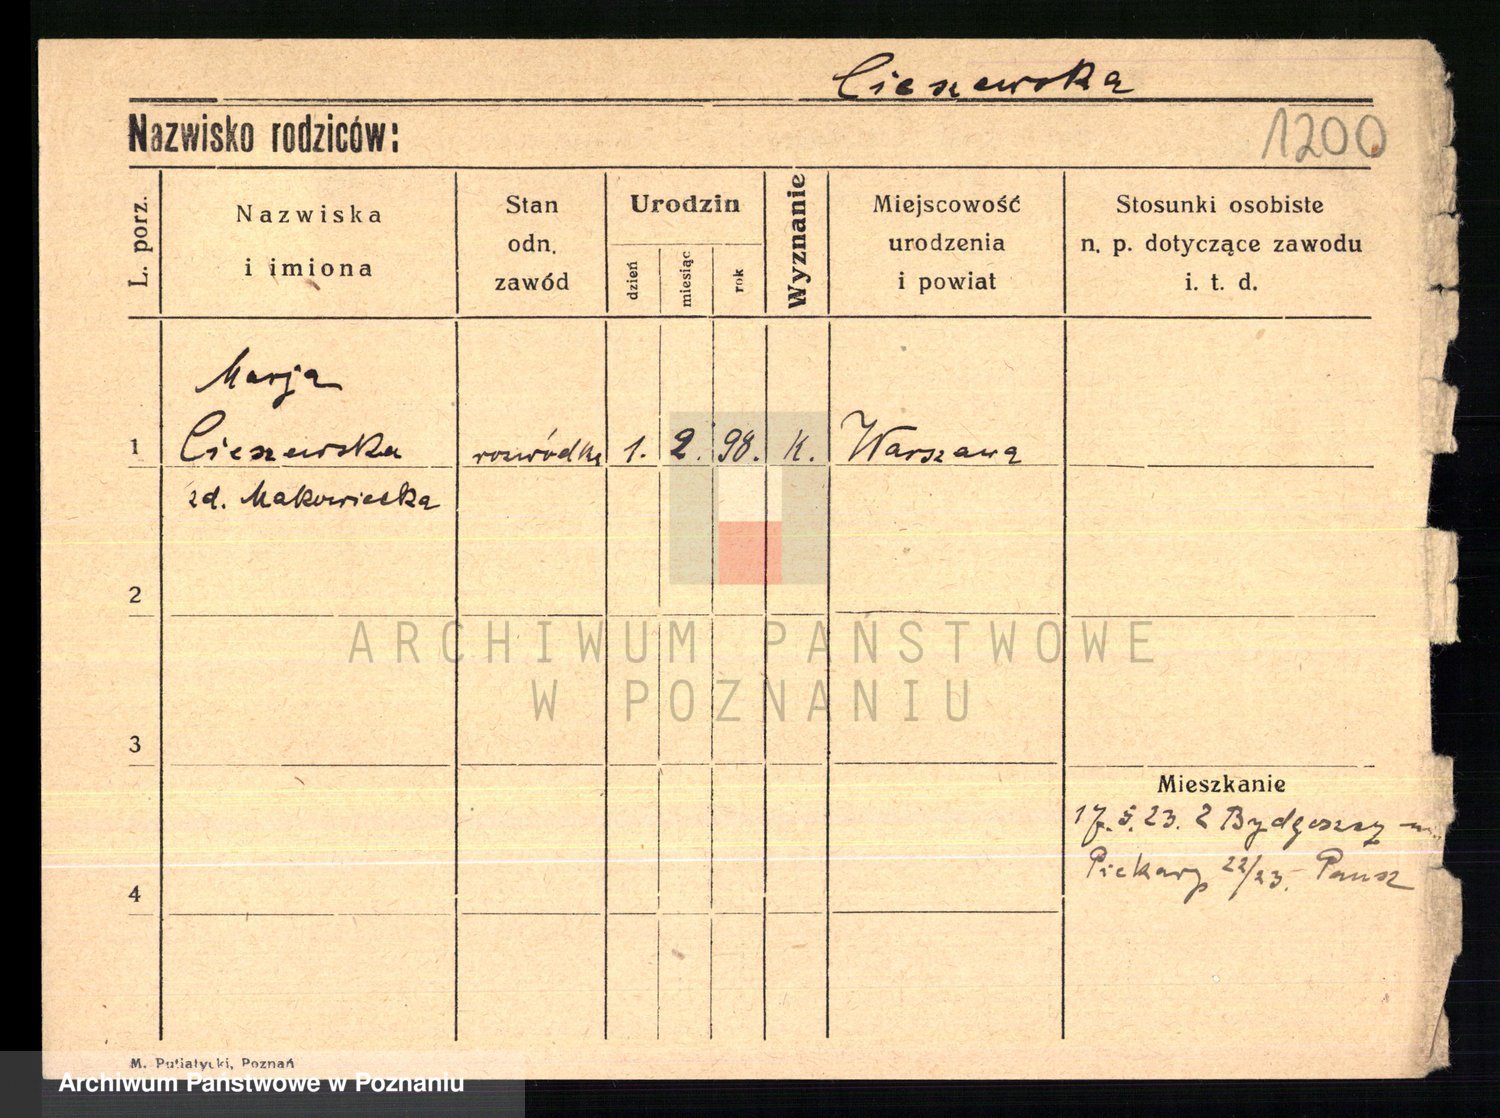 Cieszewska
Nazwisko rodziców:
1200
L. porz.
Nazwiska
i imiona
Stan
odn.
zawód
Urodzin
dzień
miesiąc
rok
Wyznanie
Miejscowość
urodzenia
i powiat
Stosunki osobiste
n. p. dotyczące zawodu
i. t. d.
Marja
1 Cieszewska rozwódka 1. 2. 98. K. Warszawa
zd. Makowiecka
2
ARCHIWUM PAŃSTWOWE
W POZNANIU
3
Mieszkanie
17.5.23. z Bydgoszczy
4 Piekary 22/23.
M. Putiatycki, Poznań
Archiwum Państwowe w Poznaniu